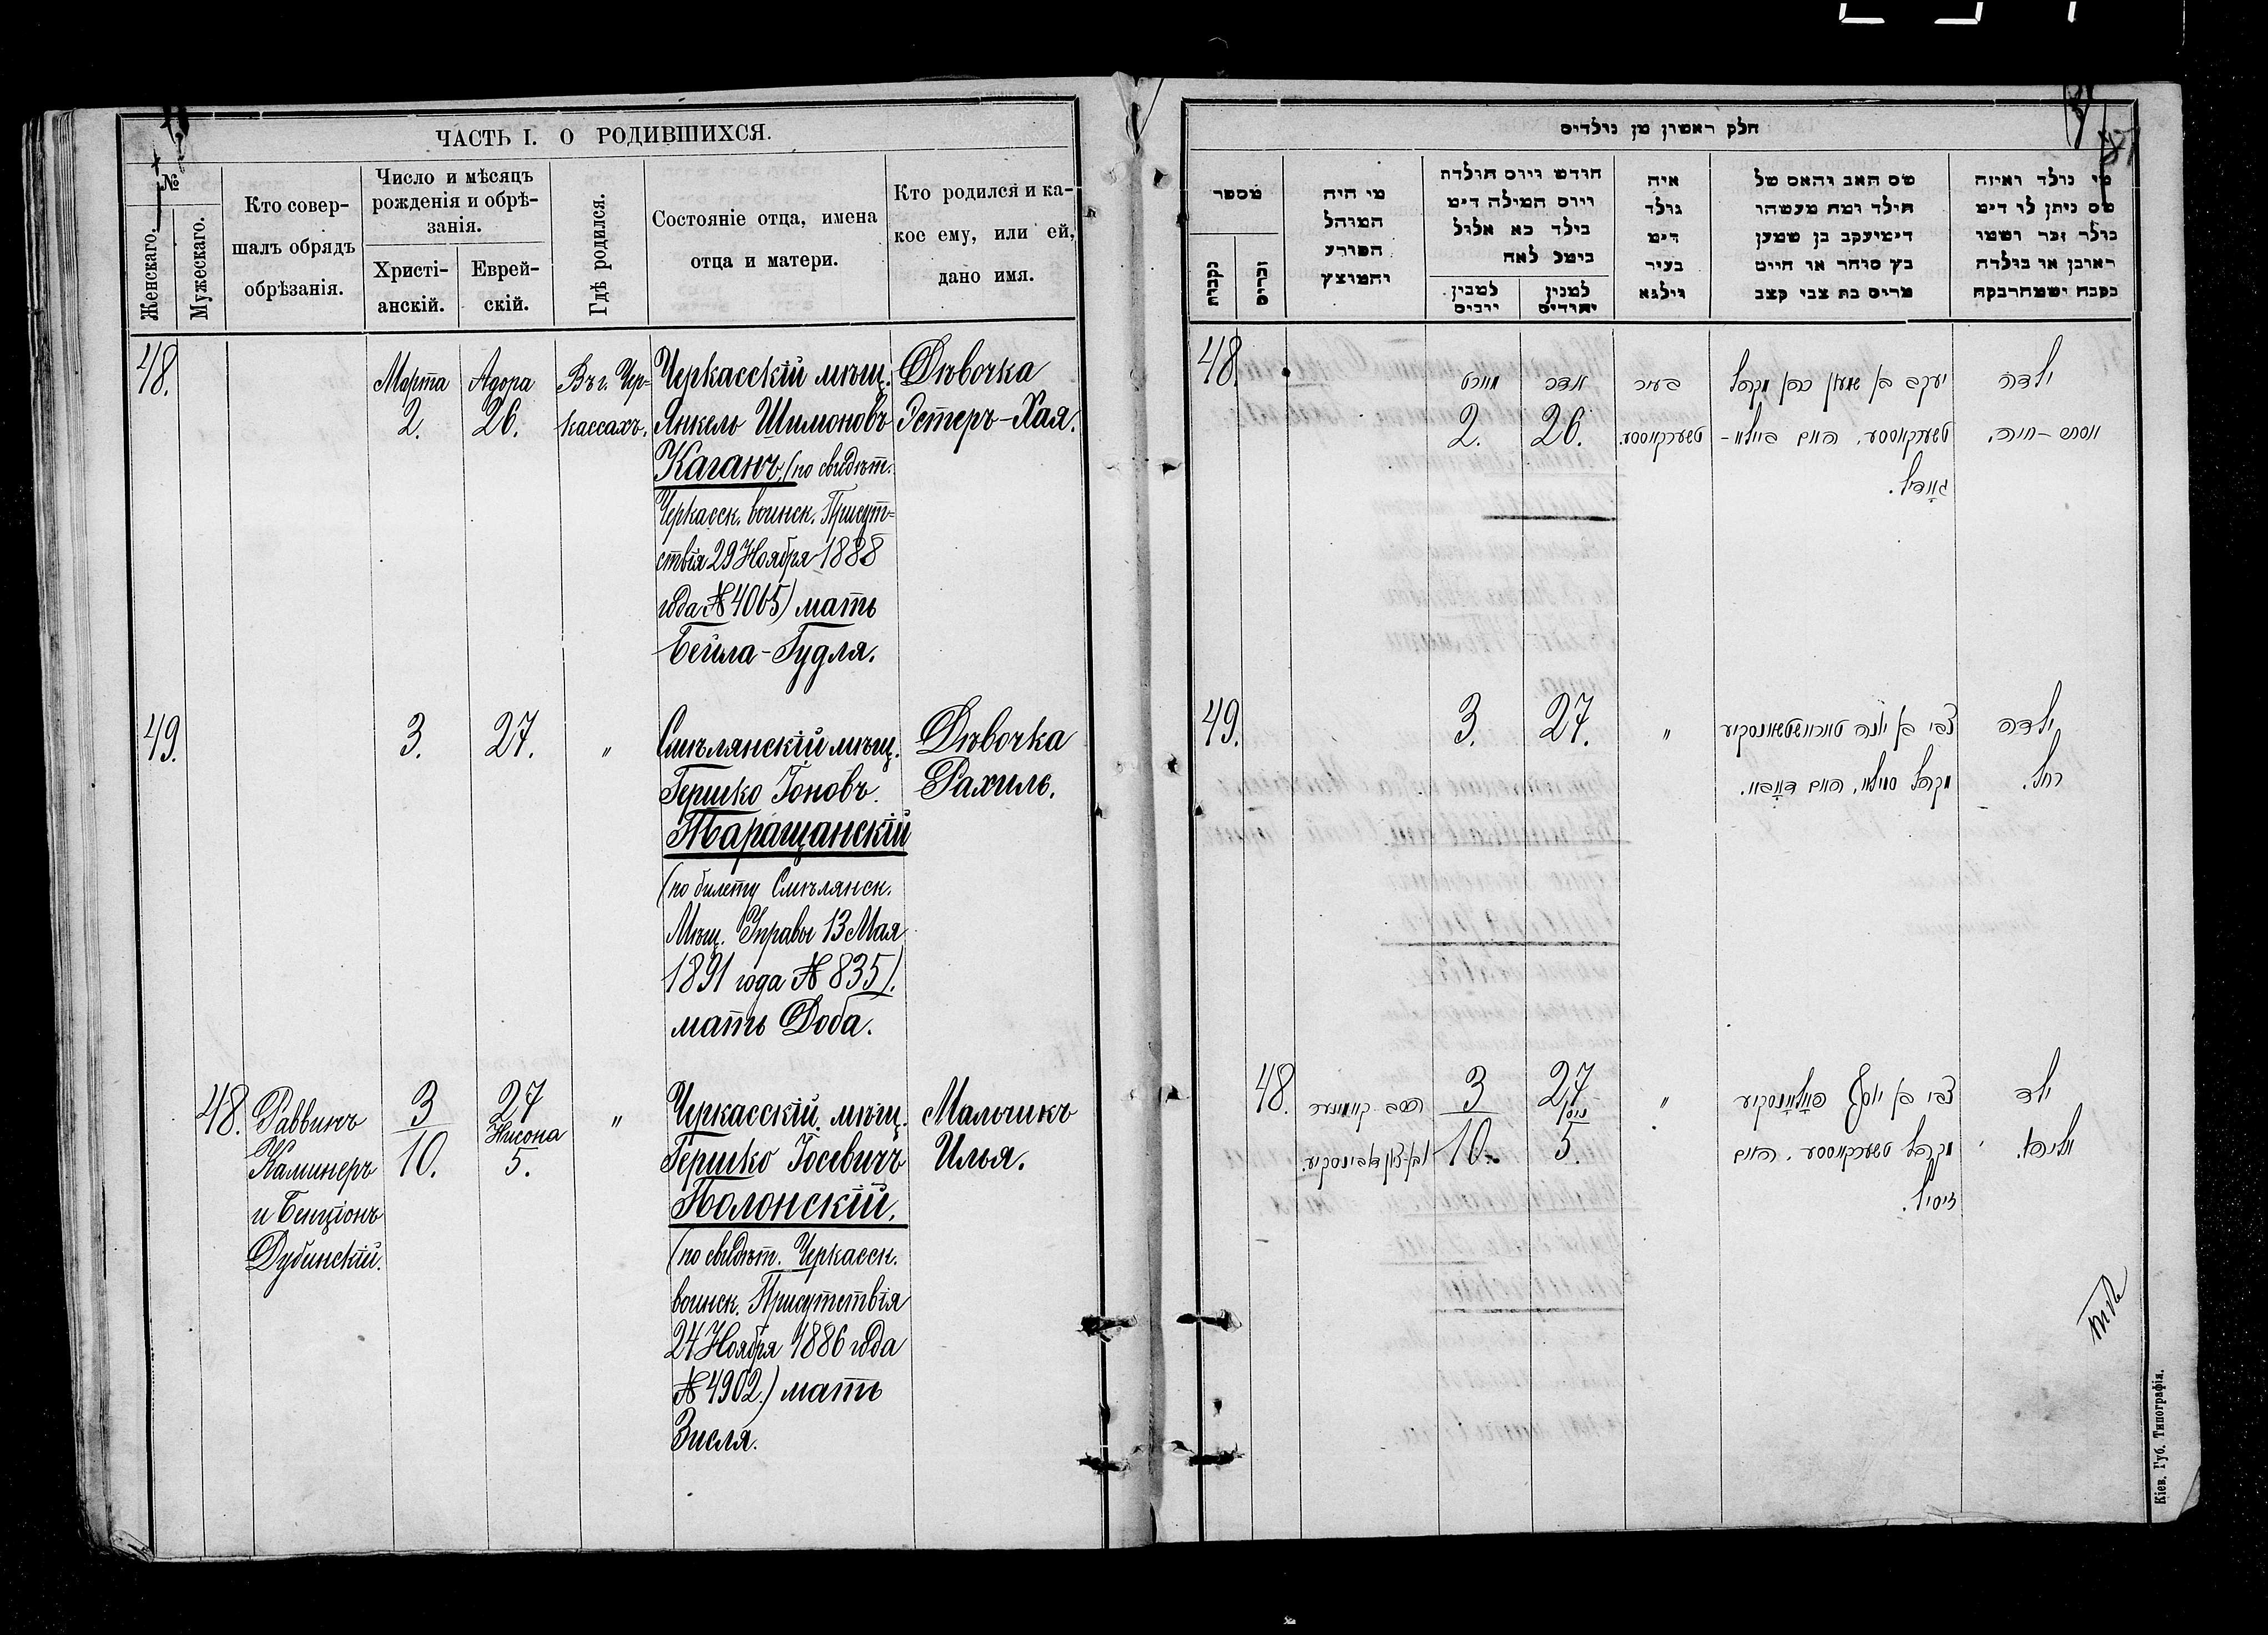 ЧАСТЬ I. О РОДИВШИХСЯ.
№
Женскаго.
Мужескаго.
Кто совер-
шалъ обрядъ
обрѣзанія.
Число и мѣсяцъ
рожденія и обрѣ-
занія.
Христі-
анскій.
Еврей-
скій.
Гдѣ родился.
Состояніе отца, имена
отца и матери.
Кто родился и ка-
кое ему, или ей,
дано имя.
48.
Марта
2.
Адара
26.
Въ г. Чер-
кассахъ.
Черкасскій мѣщ.
Янкель Шимоновъ
Каганъ (по свидѣт.
Черкасск. воинск. Присут-
ствія 29 Ноября 1888
года № 4065) мать
Бейла-Гудля.
Дѣвочка
Эстеръ-Хая.
49.
3.
27.
"
Смѣлянскій мѣщ.
Гершко Іоновъ
Таращанскій
(по билету Смѣлянск.
Мѣщ. Управы 13 Мая
1891 года № 835).
мать Доба.
Дѣвочка
Рахиль.
48.
Раввинъ
Каминеръ
и Бенціонъ
Дубинскій.
3
10.
27
Нисона
5.
"
Черкасскій мѣщ.
Гершко Іосевичъ
Полонскій.
(по свидѣт. Черкасск.
воинск. Присутствія
24 Ноября 1886 года
№ 4902.) мать
Зисля.
Мальчикъ
Илья.
חלק ראשון מן נולדים
מספר
נקבות
זכרים
מי היה
המוהל
הפורע
והמוצץ
חודש ויום הולדת
ויום המילה דימ
בילד כא אלול
בימל לאח
למנין
ירבים
למנין
יהודים
איה
נולד
דימ
בעיר
ווילנא
שם האב והאם של
הילד ומה מעשהו
דימיעקב בן שמען
כץ סוחר או חיים
מרים בת צבי קצב
מי נולד ואיזה
שם ניתן לו דימ
נולד זכר ושמו
ראובן או נולדה
נקבה ושמהרבקה
48.
מארט
2.
אדר
26.
בעיר
טשערקאססע.
יעקב בן שמעון כהן מקהל
טשערקאססע, האם ביילא-
גאָדיל.
ילדה
אסתר-חיה.
49.
3.
27.
"
צבי בן יונה טאראשטשאנסקיע
מקהל סמילא, האם דאָבא.
ילדה
רחל.
48.
הרב קאמינער
ובן-ציון דובינסקיע.
3
10.
27
ניסן
5.
"
צבי בן יוסף פּאָלאָנסקיע
מקהל טשערקאססע, האם
זיסיל.
ילד
אליהו.
Кіев. Губ. Типографія.